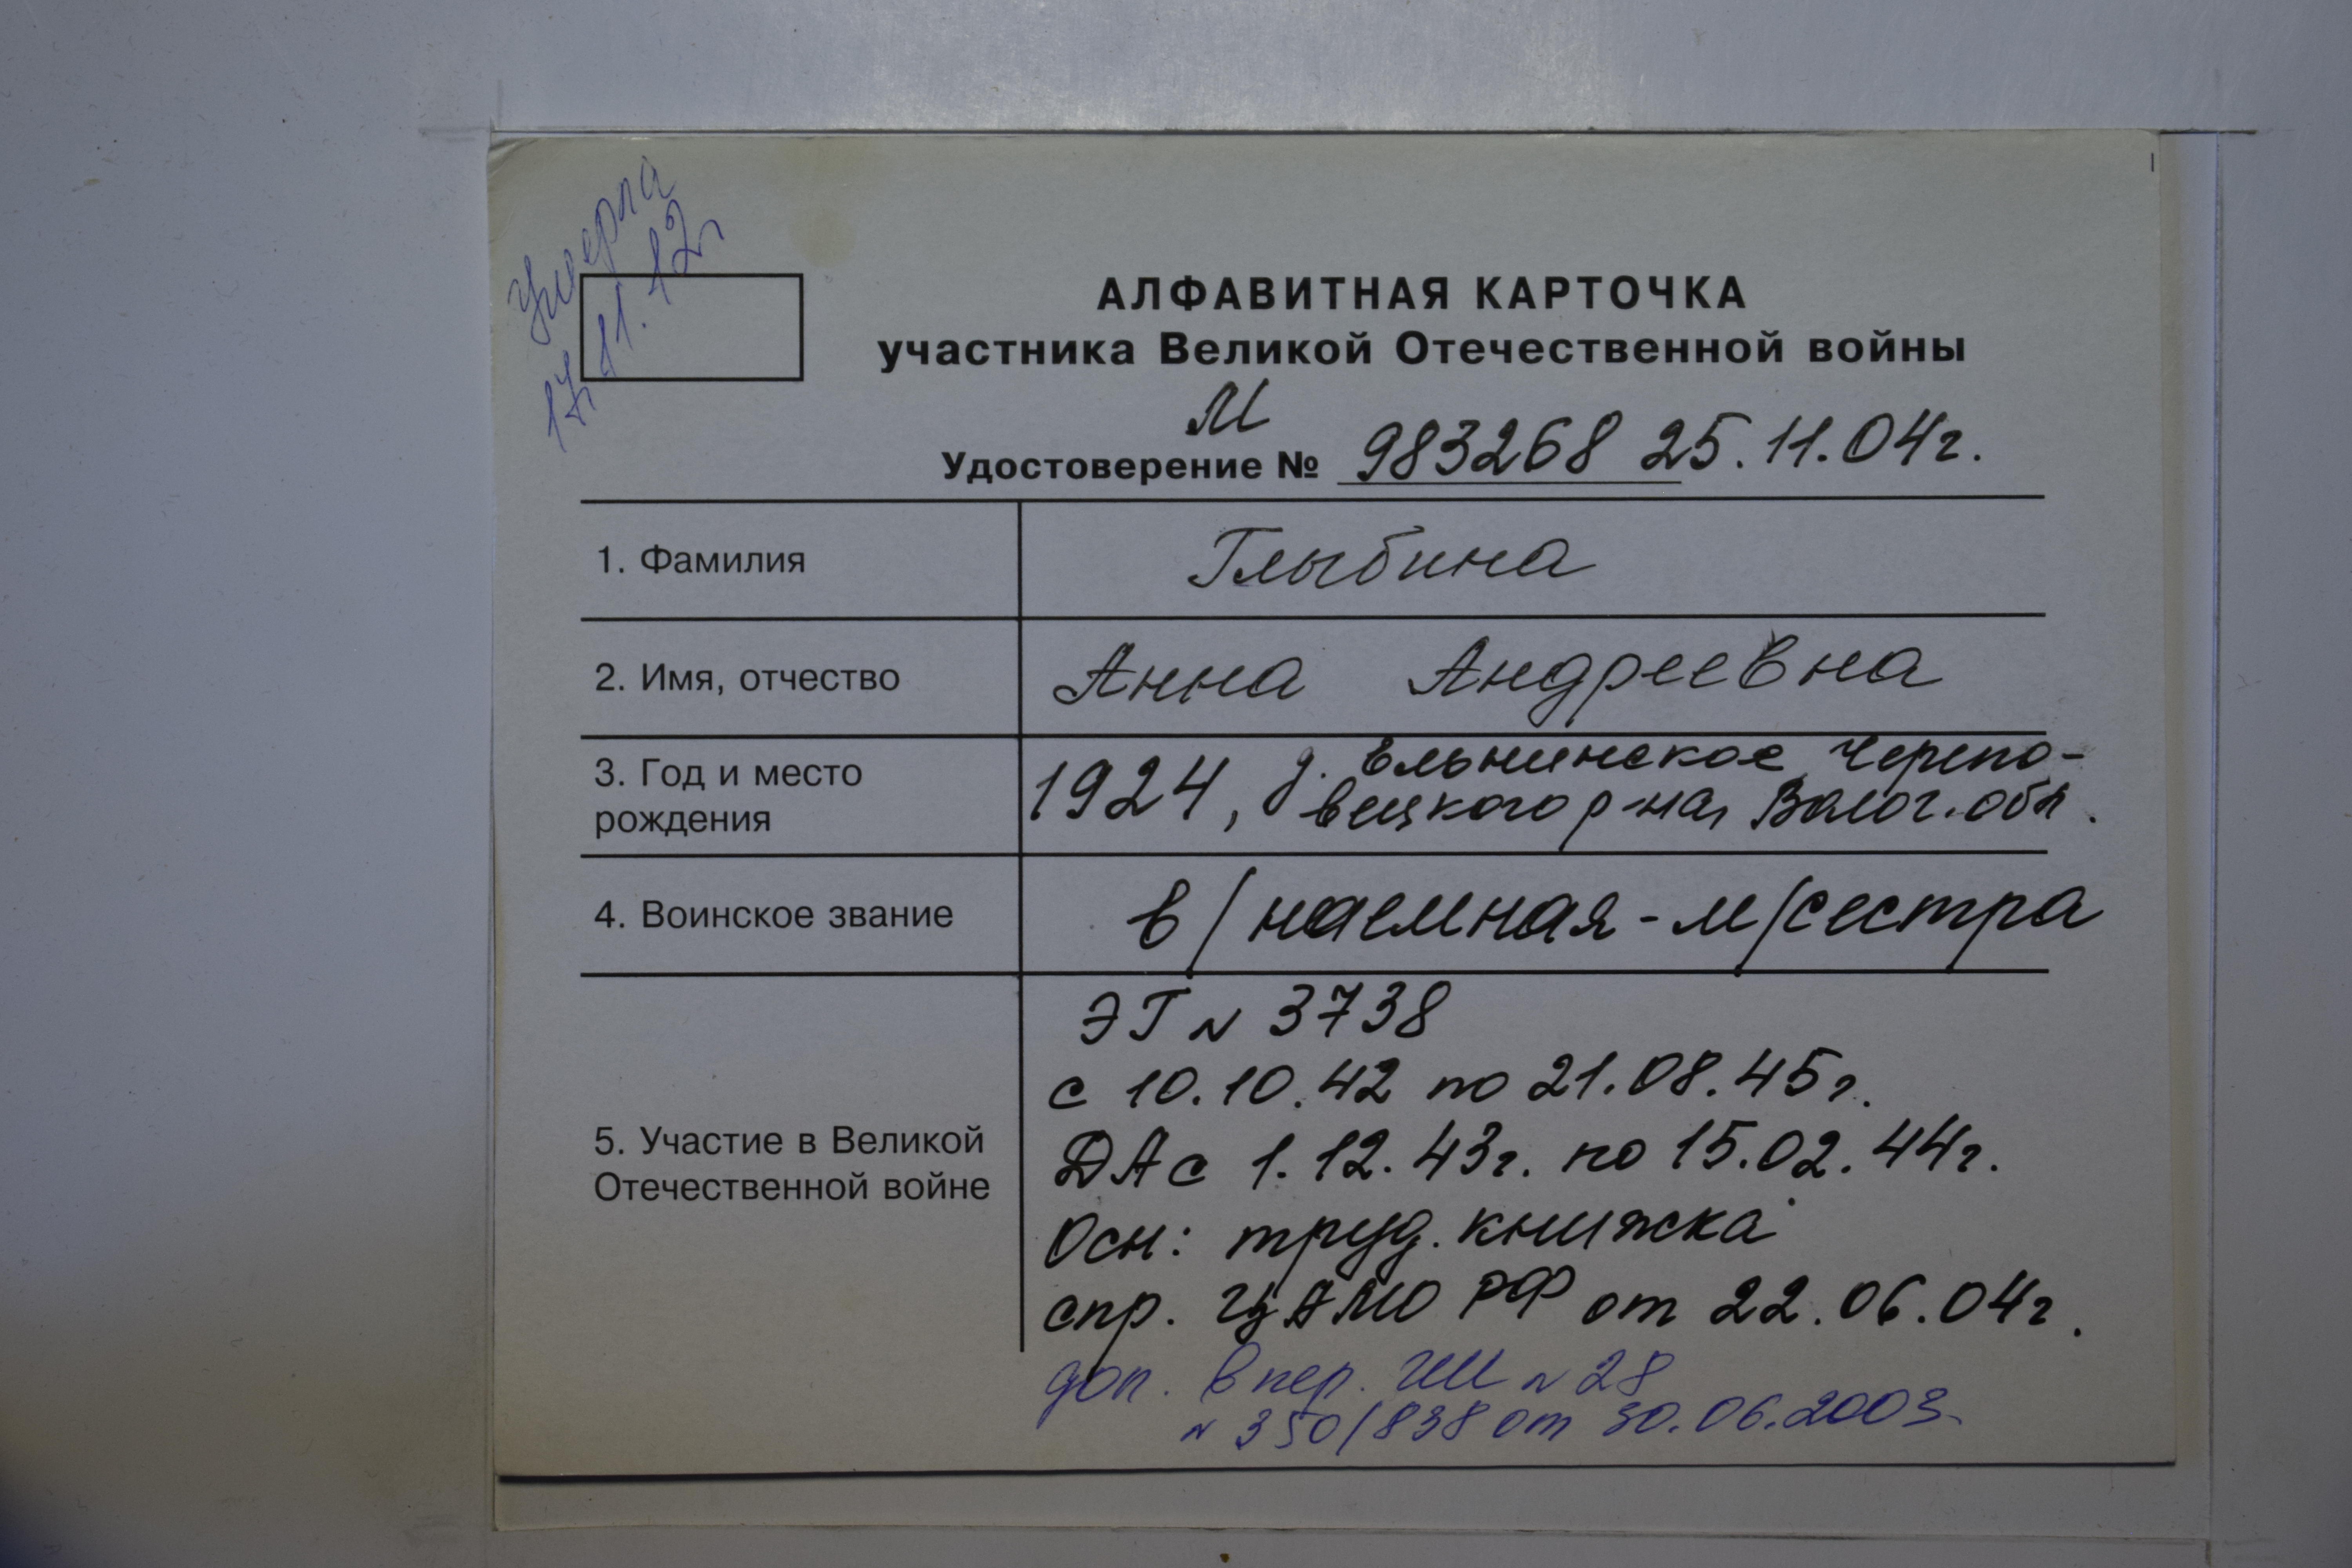 Умерла
17.11.12г
АЛФАВИТНАЯ КАРТОЧКА
участника Великой Отечественной войны
М
Удостоверение № 983268 25.11.04г.
1. Фамилия
Глыбина
2. Имя, отчество
Анна Андреевна
3. Год и место
рождения
1924, д. Ельнинское Черепо-
вецкого р-на, Волог. обл.
4. Воинское звание
в/наемная - м/сестра
5. Участие в Великой
Отечественной войне
ЭГ N 3738
с 10.10.42 по 21.08.45г.
ДА с 1.12.43г. по 15.02.44г.
Осн: труд. книжка
спр. ЦАМО РФ от 22.06.04г.
доп. в пер. N 28
N 350/838 от 30.06.2003